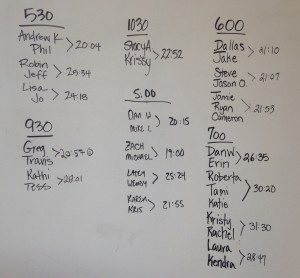 530
Andrew K
Phil > 20:04
Robin
Jeff > 25:34
Lisa
Jo > 24:18
930
Greg
Travis > 20:53
Kathi
Tess > 28:01
1030
Stacy A
Krissy > 22:52
5:00
Dan W
Mike L > 20:15
Zach
Michael > 19:00
Lacey
Wendy > 25:24
Karen
Kris > 21:55
600
Dallas
Jake > 21:10
Steve
Jason O. > 21:07
Jamie
Ryan > 21:53
Cameron
700
Dan W
Erin > 26:35
Roberta
Tami > 30:20
Katie
Kristy
Rachel > 31:30
Laura
Kendra > 28:47